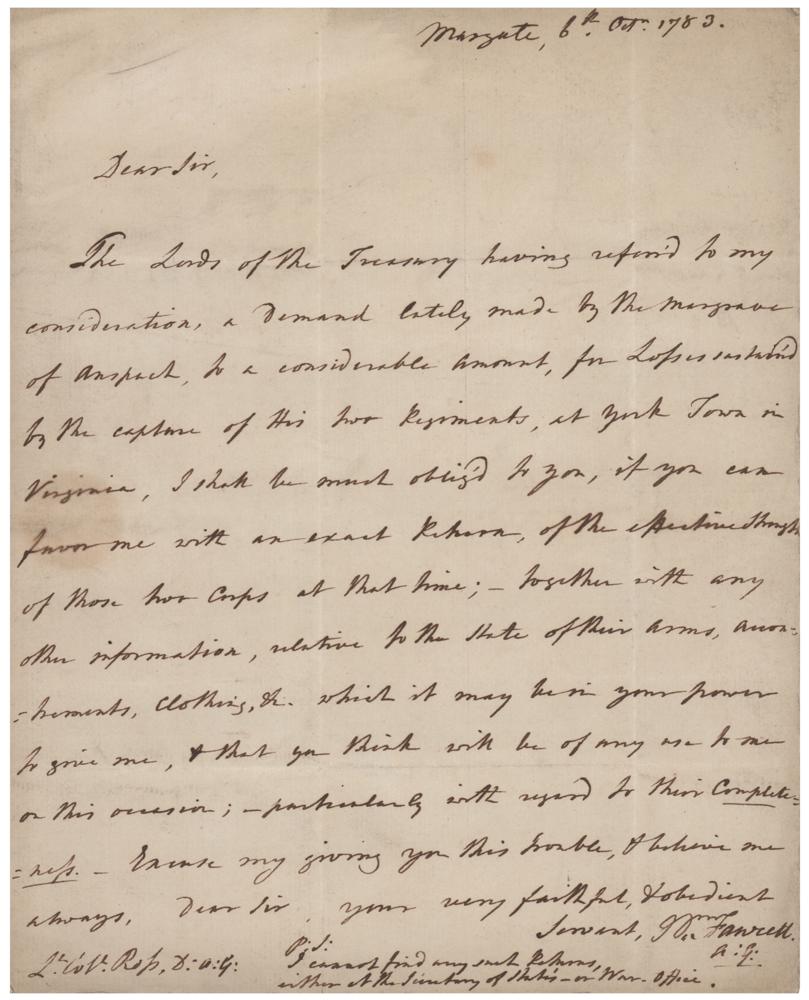 Margate, 6th. Octr. 1783.
Dear Sir,
The Lords of the Treasury having referr'd to my
consideration, a Demand lately made by the Margrave
of Anspach, to a considerable amount, for Losses sustain'd
by the capture of His two Regiments, at York Town in
Virginia, I shall be much oblig'd to you, if you can
favor me with an exact Return, of the effective Strength
of those two Corps at that time; – together with any
other information, relative to the State of their Arms, accou=
=trements, Clothing, &c. which it may be in your power
to give me, & that you think will be of any use to me
on this occasion; – particularly with regard to their Complete=
=ness. – Excuse my giving you this trouble, & believe me
always, Dear Sir, your very faithful, & obedient
Servant, Wm Fawcett.
A:G:
Lt. Col. Ross, D:A:G:
P:S:
I cannot find any such Returns,
either at the Secretary of State's – or War-Office.